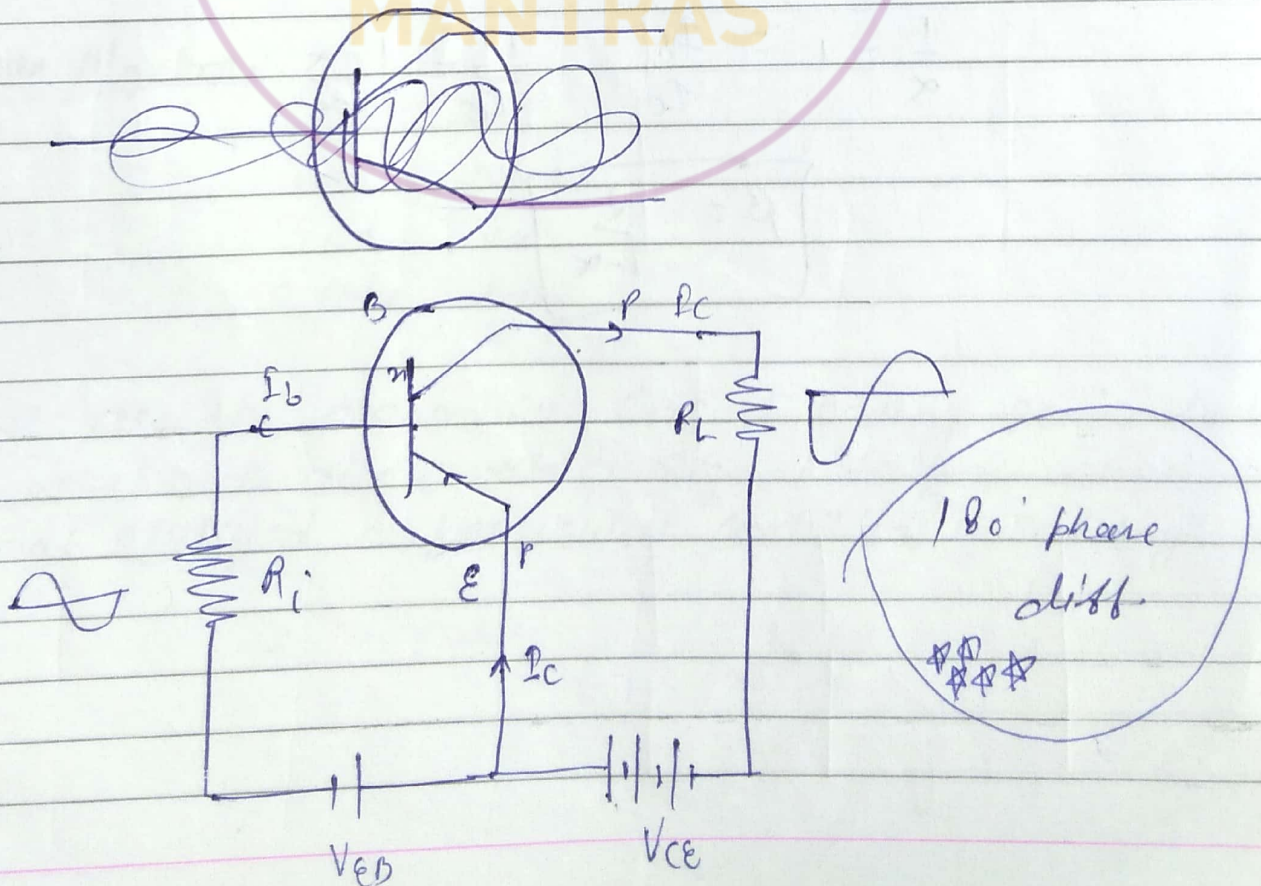 MANTRAS
B
P Ic
n
Ib
RL
Ri
180° phase
diff.
E
P
Ic
VEB
VCE